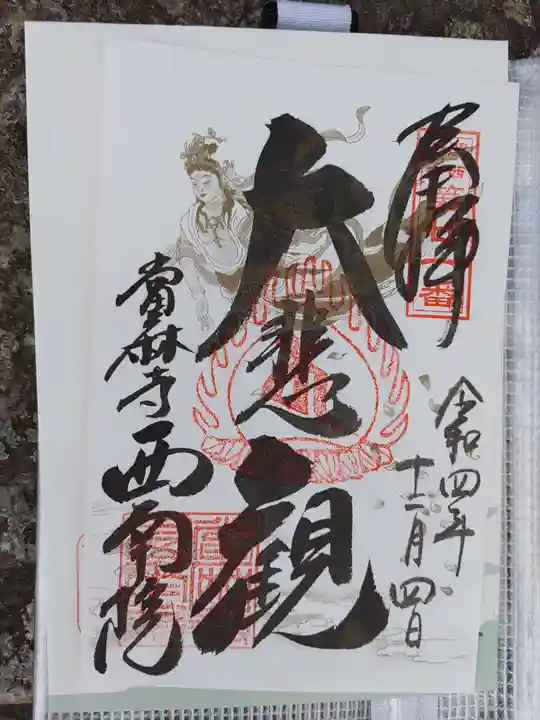 奉拝
令和四年
十二月四日
大悲観
當麻寺西南院